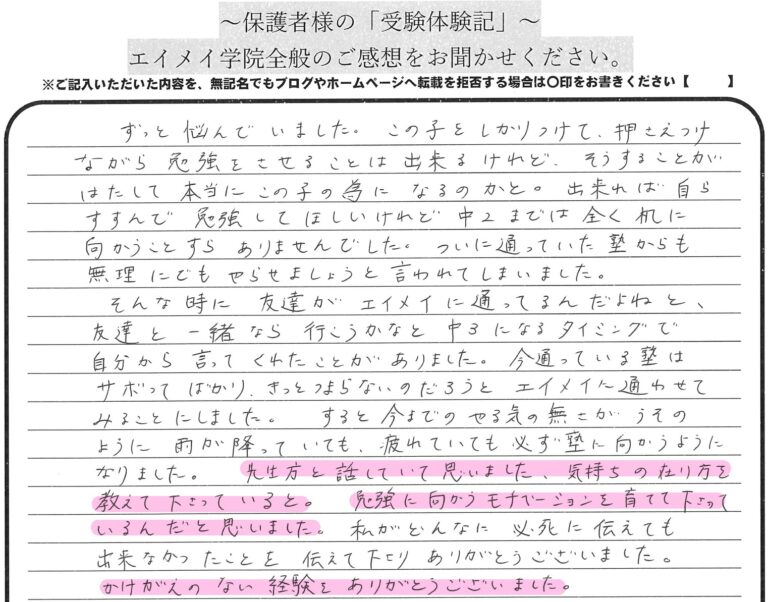 ～保護者様の「受験体験記」～
エイメイ学院全般のご感想をお聞かせください。
※ご記入いただいた内容を、無記名でもブログやホームページへ転載を拒否する場合は〇印をお書きください【　　】
ずっと悩んでいました。この子をしかりつけて、押さえつけ
ながら勉強をさせることは出来るけれど、そうすることが
はたして本当にこの子の為になるのかと。出来れば自ら
すすんで勉強してほしいけれど中2までは全く机に
向かうことすらありませんでした。ついに通っていた塾からも
無理にでもやらせましょうと言われてしまいました。
そんな時に友達がエイメイに通ってるんだよねと、
友達と一緒なら行こうかなと中3になるタイミングで
自分から言ってくれたことがありました。今通っている塾は
サボってばかり、きっとつまらないのだろうとエイメイへ通わせて
みることにしました。すると今までのやる気の無さがうその
ように雨が降っていても、疲れていても必ず塾に向かうように
なりました。先生方と話していて思いました、気持ちの在り方を
教えて下さっていると。勉強に向かうモチベーションを育てて下さって
いるんだと思いました。私がどんなに必死に伝えても
出来なかったことを伝えて下さりありがとうございました。
かけがえのない経験をありがとうございました。